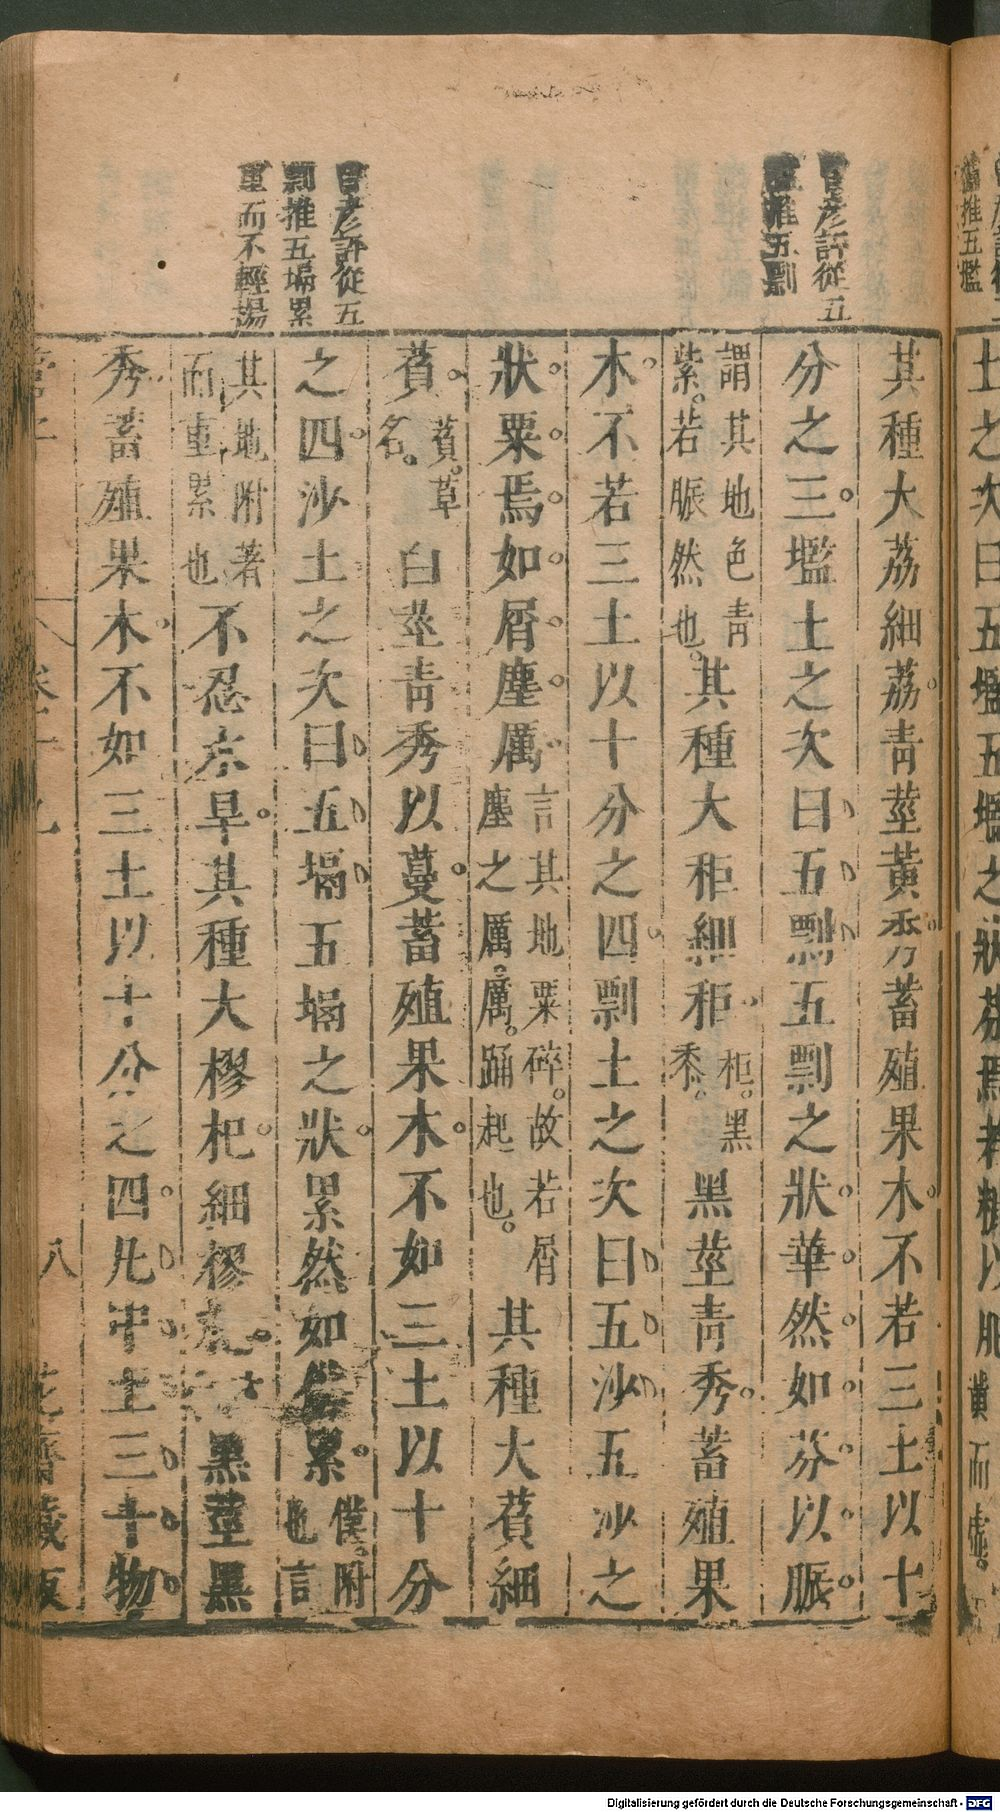 土之次曰五壏五壏之狀芬焉若糠以肥黃而虛。
其種大荔細荔青莖黃秀蓄殖果木不若三土以十
分之三壏土之次曰五剽五剽之狀華然如芬以脤
謂其地色青紫。若脤然也。其種大秬細秬秬。黑黍。黑莖青秀蓄殖果
木不若三土以十分之四剽土之次曰五沙五沙之
狀粟焉如屑塵厲言其地粟碎。故若屑塵之厲。厲。踊起也。其種大萯細
萯萯。草名。白莖青秀以蔓蓄殖果木不如三土以十分
之四沙土之次曰五塥五塥之狀累然如僕累僕。附也言
其地附著而重累也不忍水旱其種大樛杞細樛杞黑莖黑
秀蓄殖果木不如三土以十分之四凡中土三十物
彥評從五
推五剽
彥評從五
剽推五塥累
重而不輕揚
推五壏
管子
卷十九
八
花齋藏版
Digitalisierung gefördert durch die Deutsche Forschungsgemeinschaft - DFG